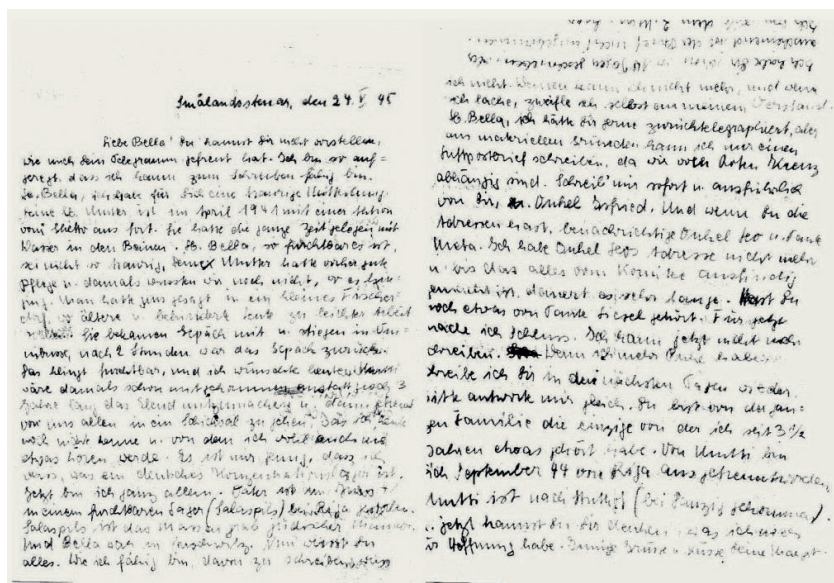 Smålandsstenar, den 24. V 45
Liebe Bella! Du kannst Dir nicht vorstellen,
wie mich Dein Telegramm gefreut hat. Ich bin so auf-
geregt, dass ich kaum zum Schreiben fähig bin.
Lb. Bella, ich habe für Dich eine traurige Mitteilung.
Deine lb. Mutter ist im April 1941 mit einer Aktion
vom Ghetto aus fort. Sie hatte die ganze Zeit gelegen mit
Wasser in den Beinen. Lb. Bella, so furchtbar es ist,
sei nicht so traurig, Deine Mutter hatte vorher gute
Pflege u. damals wussten wir noch nicht, wo es hin-
ging. Man hatte uns gesagt in ein kleines Fischer-
dorf, wo ältere u. behinderte Leute zu leichter Arbeit
Sie bekamen Gepäck mit u. stiegen in Om-
nibusse, nach 2 Stunden war das Gepäck zurück.
Das klingt furchtbar, und ich wünschte heute, Mutti
wäre damals schon mitgekommen anstatt noch 3
Jahre lang das Elend mitzumachen u. dann getrennt
von uns allen in ein Schicksal zu gehen, das ich heute
noch nicht kenne u. von dem ich wohl auch nie
etwas hören werde. Es ist nur genug, dass ich
weiss, was ein deutsches Konzentrationslager ist.
Jetzt bin ich ganz allein. Vater ist im
in einem furchtbaren Lager (Salaspils) bei Riga
Salaspils ist das Massengrab jüdischer Männer.
Und Bella auch in Auschwitz. Nun weisst Du
alles. Wie ich fähig bin, davon zu schreiben, weiss
ich nicht. Weinen kann ich nicht mehr, und wenn
ich lache, zweifle ich selbst an meinem Verstand.
Lb. Bella, ich hätte Dir gerne zurücktelegraphiert, aber
aus materiellen Gründen kann ich nur einen
Luftpostbrief schreiben, da wir vom Roten Kreuz
abhängig sind. Schreib' mir sofort u. ausführlich
von Dir, Onkel Manfried. Und wenn Du die
Adressen hast, benachrichtige Onkel Leo u. Tante
Meta. Ich habe Onkel Leos Adresse nicht mehr
u. bis das alles vom Komitee ausfindig
gemacht ist, dauert es sehr lange. Hast Du
noch etwas von Tante Liesel gehört. Für jetzt
mache ich Schluss. Ich kann jetzt nicht mehr
schreiben. Wenn ich mehr Ruhe habe,
schreibe ich Dir in den nächsten Tagen wieder.
Bitte antwort mir gleich. Du bist von der gan-
zen Familie die einzige von der ich seit 3½
Jahren etwas gehört habe. Von Mutti bin
ich September 44 von Riga aus getrennt worden.
Mutti ist nach Stutthof (bei Danzig gekommen).
Jetzt kannst Du Dir denken, was ich noch
für Hoffnung habe. Innige Grüsse u. Küsse Deine
Ich habe Dir schon vor 14 Tagen geschrieben,
anscheinend ist der Brief nicht angekommen.